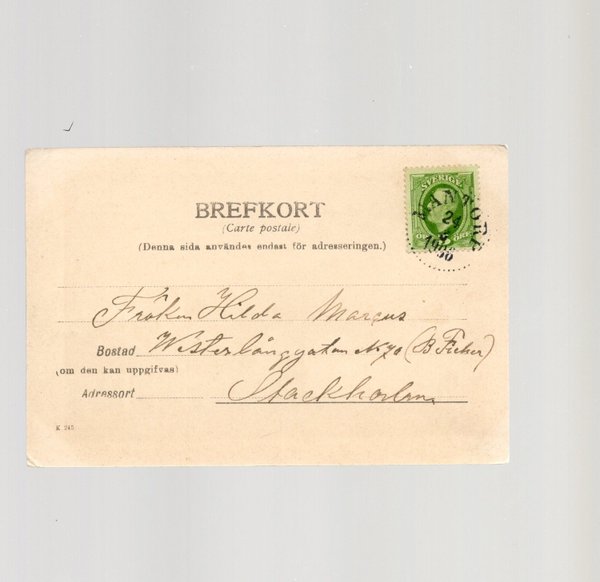 BREFKORT
(Carte postale)
(Denna sida användes endast för adresseringen.)
SVERIGE
24
1906
ÖRE
Fröken Hilda Marcus
Bostad Westerlånggatan No 70 (B Fischer)
(om den kan uppgifvas)
Adressort Stockholm
K 245